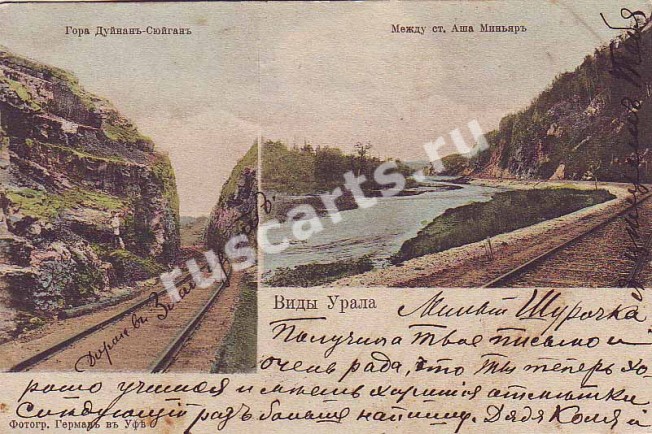 Гора Дуйнанъ-Сюйганъ.
Между ст. Аша Миньяръ
ruscarts.ru
Виды Урала
Милый Шурочка
Получила твое письмо и
очень рада, что ты теперь хо
рошо учишся и имеешь хорошия отметки
Следующий разъ больше напишу. Дядя Коля и
Фотогр. Германъ въ Уфѣ